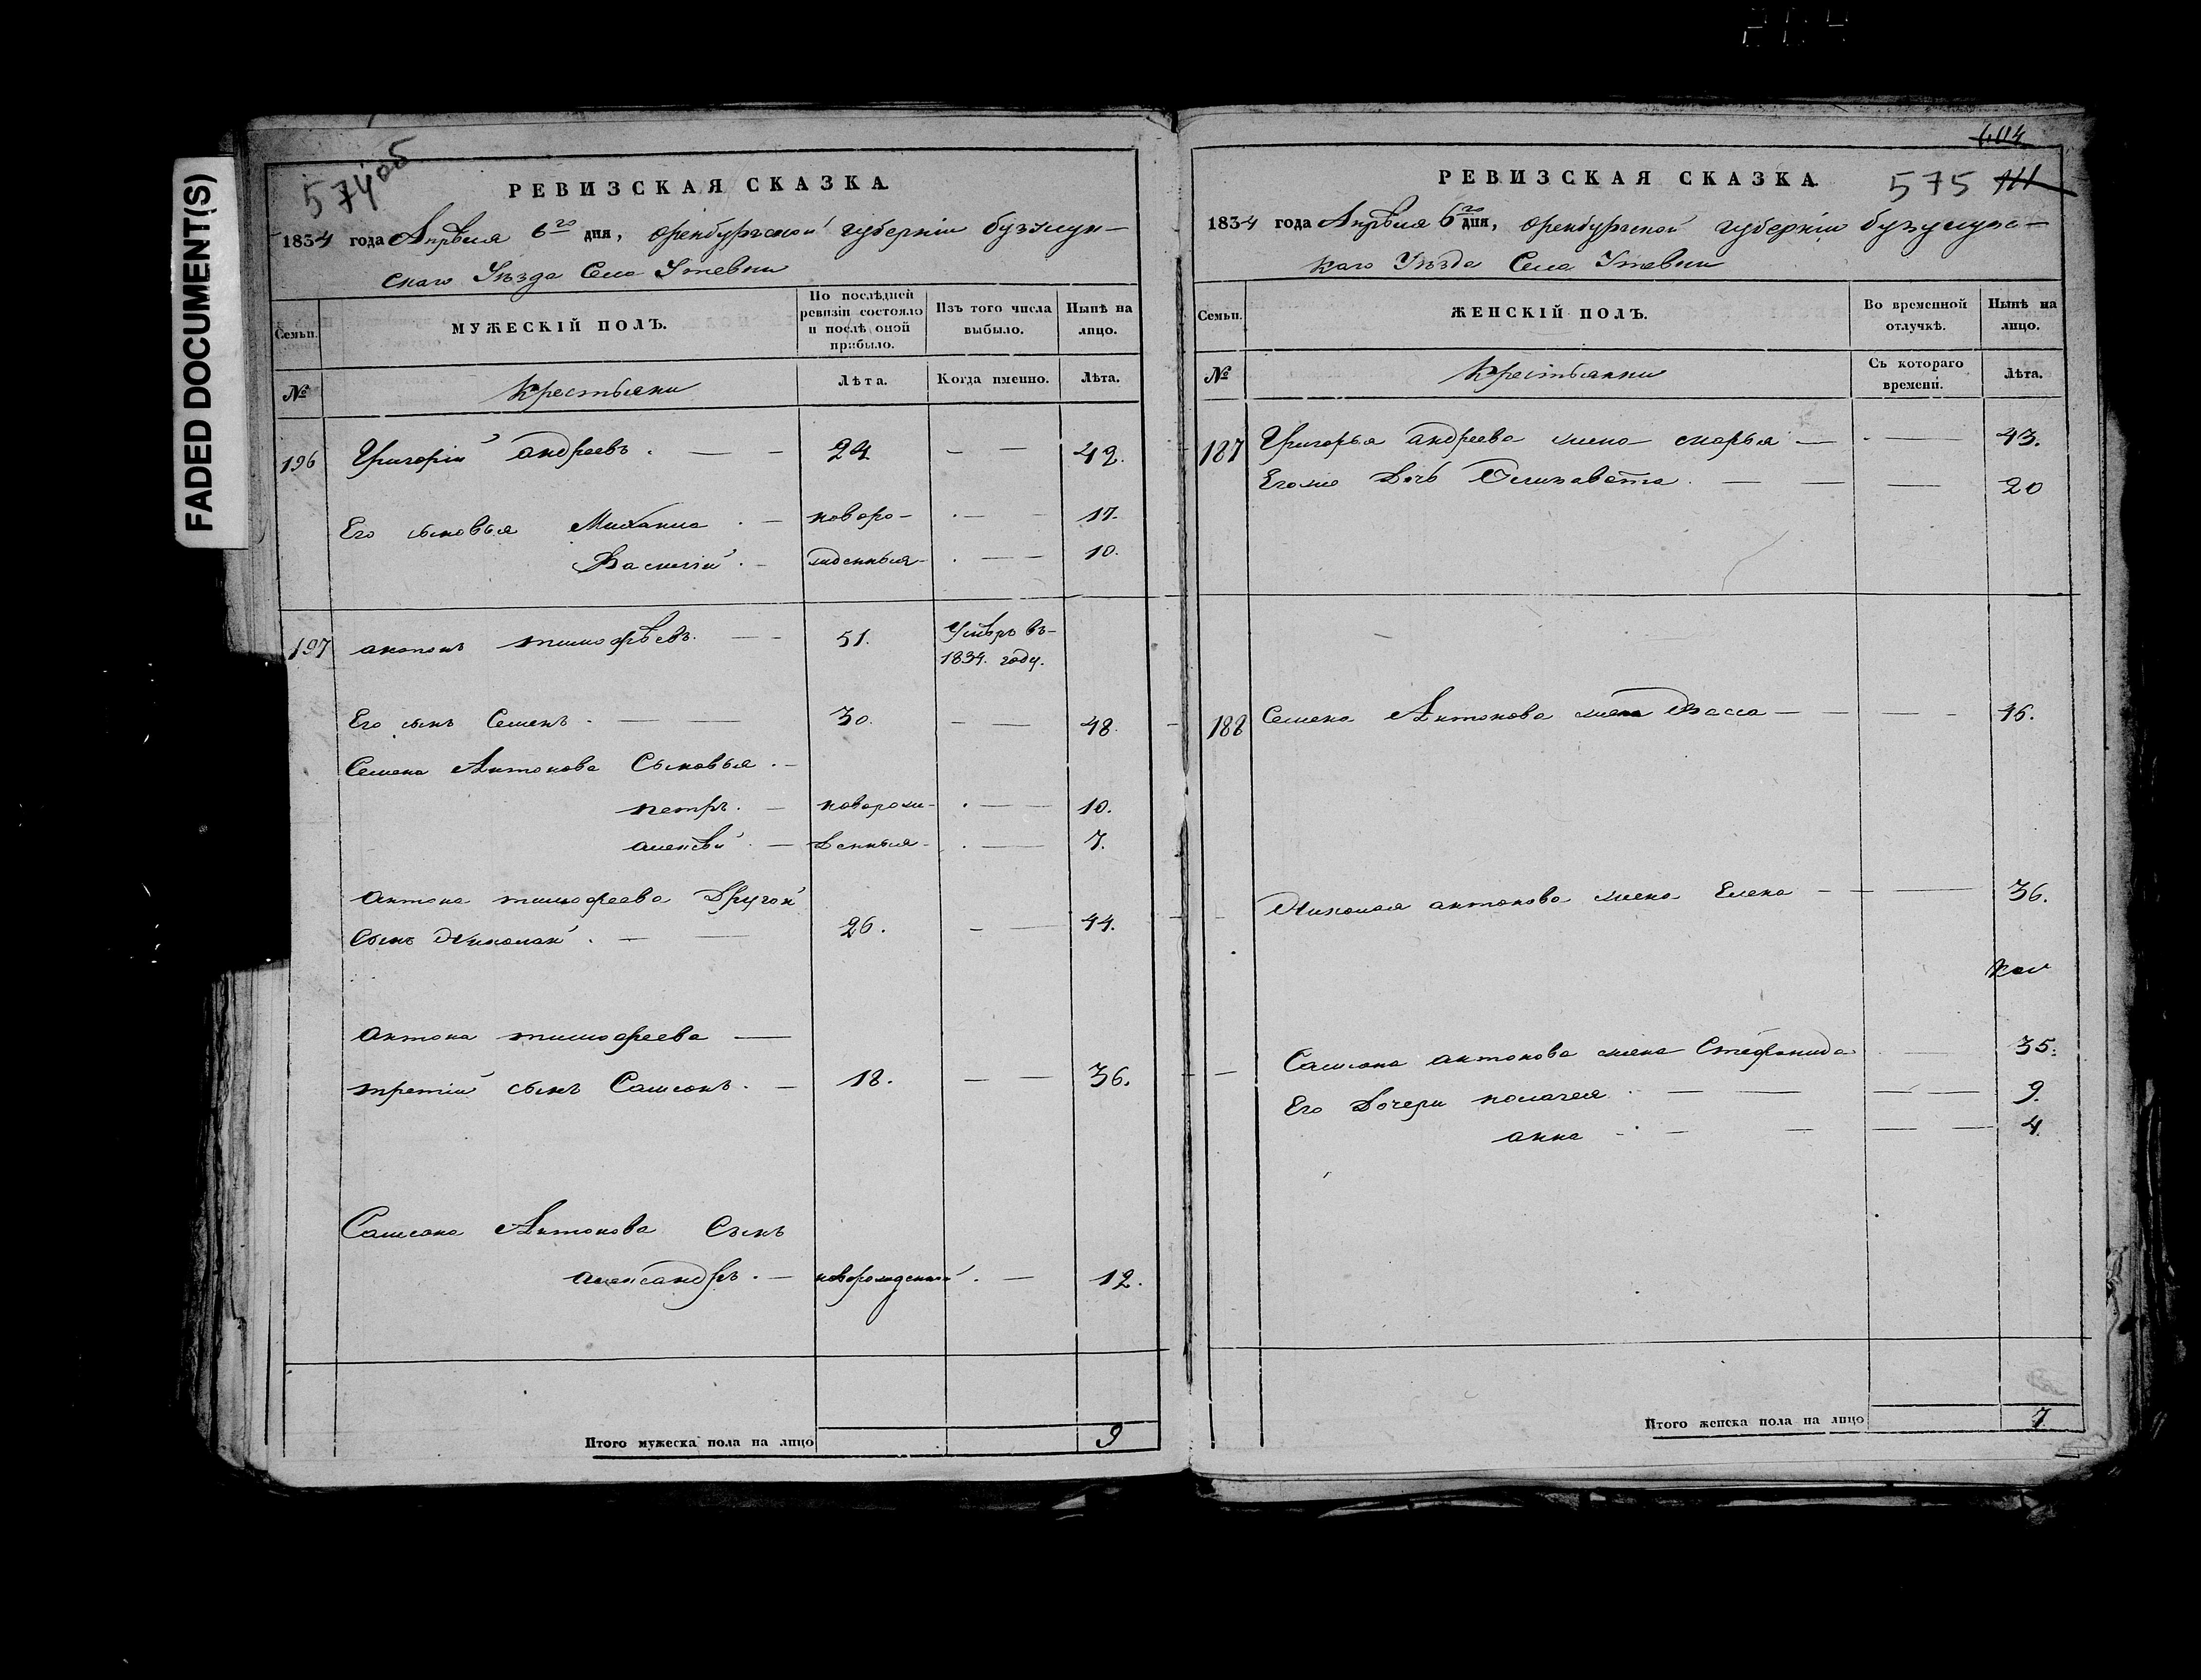 FADED DOCUMENT(S)
574об
РЕВИЗСКАЯ СКАЗКА
1834 года Апрѣля 6го дня, Оренбургской губерніи бузулун-
скаго Уѣзда Села Утевки
Семьи.
МУЖЕСКІЙ ПОЛЪ.
По послѣдней ревизіи состояло и послѣ оной прибыло.
Изъ того числа выбыло.
Нынѣ на лицо.
№
Крестьяни
Лѣта.
Когда именно.
Лѣта.
196 Григорій андреевъ. — - 24 - — 42.
Его сыновья Михаила . — новоро- . — 17.
Василій . - жденныя - . — — 10.
197 антонъ тимофѣевъ. — - 51. Умѣръ въ-
1834. году.
Его сынъ Семенъ . — — 30. - — 48.
Семена Антонова Сыновья . -
петръ . — новорож- . — — 10.
алексѣй . — денныя - . — 7.
антона тимофеева Другой
Сынъ Николай . — — 26. - — 44.
антона тимофеева —
третій сынъ Самсонъ . - 18. — — 36.
Самсона Антонова Сынъ
александръ . — новорожденный . — 12.
Итого мужеска пола на лицо 9
604
РЕВИЗСКАЯ СКАЗКА
575
1834 года Апрѣля 6го дня, Оренбургской губерніи бузулунс-
каго Уѣзда Села Утевки
Семьи.
ЖЕНСКІЙ ПОЛЪ.
Во временной отлучкѣ.
Нынѣ на лицо.
№
Крестьянки
Съ котораго времени.
Лѣта.
187 Григорья андреева жена марья — . — 43.
Его же Дочь Елизавета . — — — 20
188 Семена Антонова жена Васса — - — - 46.
Николая антонова жена Елена - — — 36.
Самсона антонова жена Стефанида — 35.
Его Дочери пелагея . — — — — 9.
анна - . - — — — 4.
Итого женска пола на лицо 7